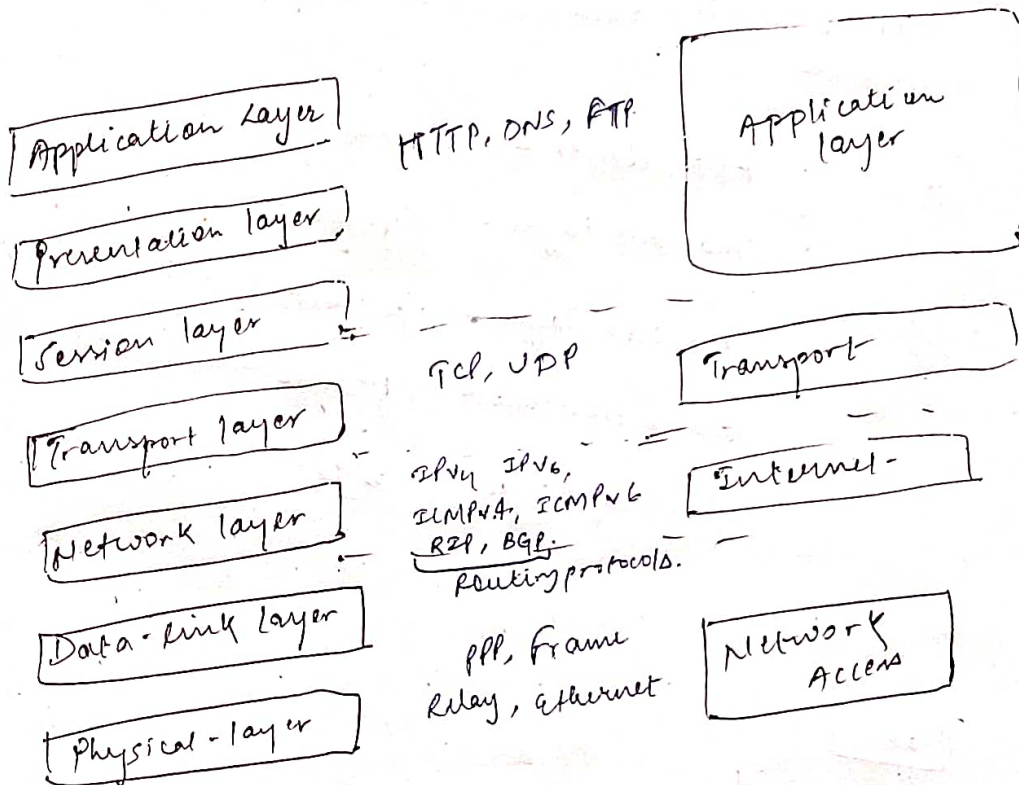 Application Layer
Presentation layer
Session layer
Transport layer
Network layer
Data-link layer
Physical-layer
HTTP, DNS, FTP
TCP, UDP
IPv4 IPv6,
ICMPv4, ICMPv6
RIP, BGP.
Routing protocols.
PPP, Frame
Relay, Ethernet
Application
layer
Transport
Internet-
Network
Access